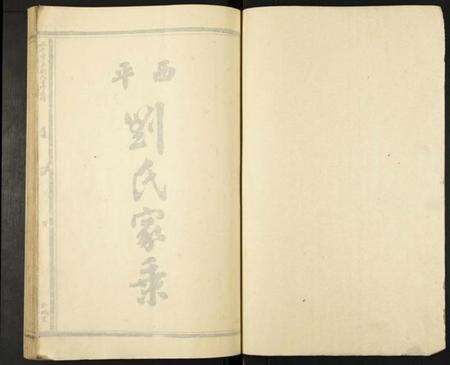 西平
劉氏家乘